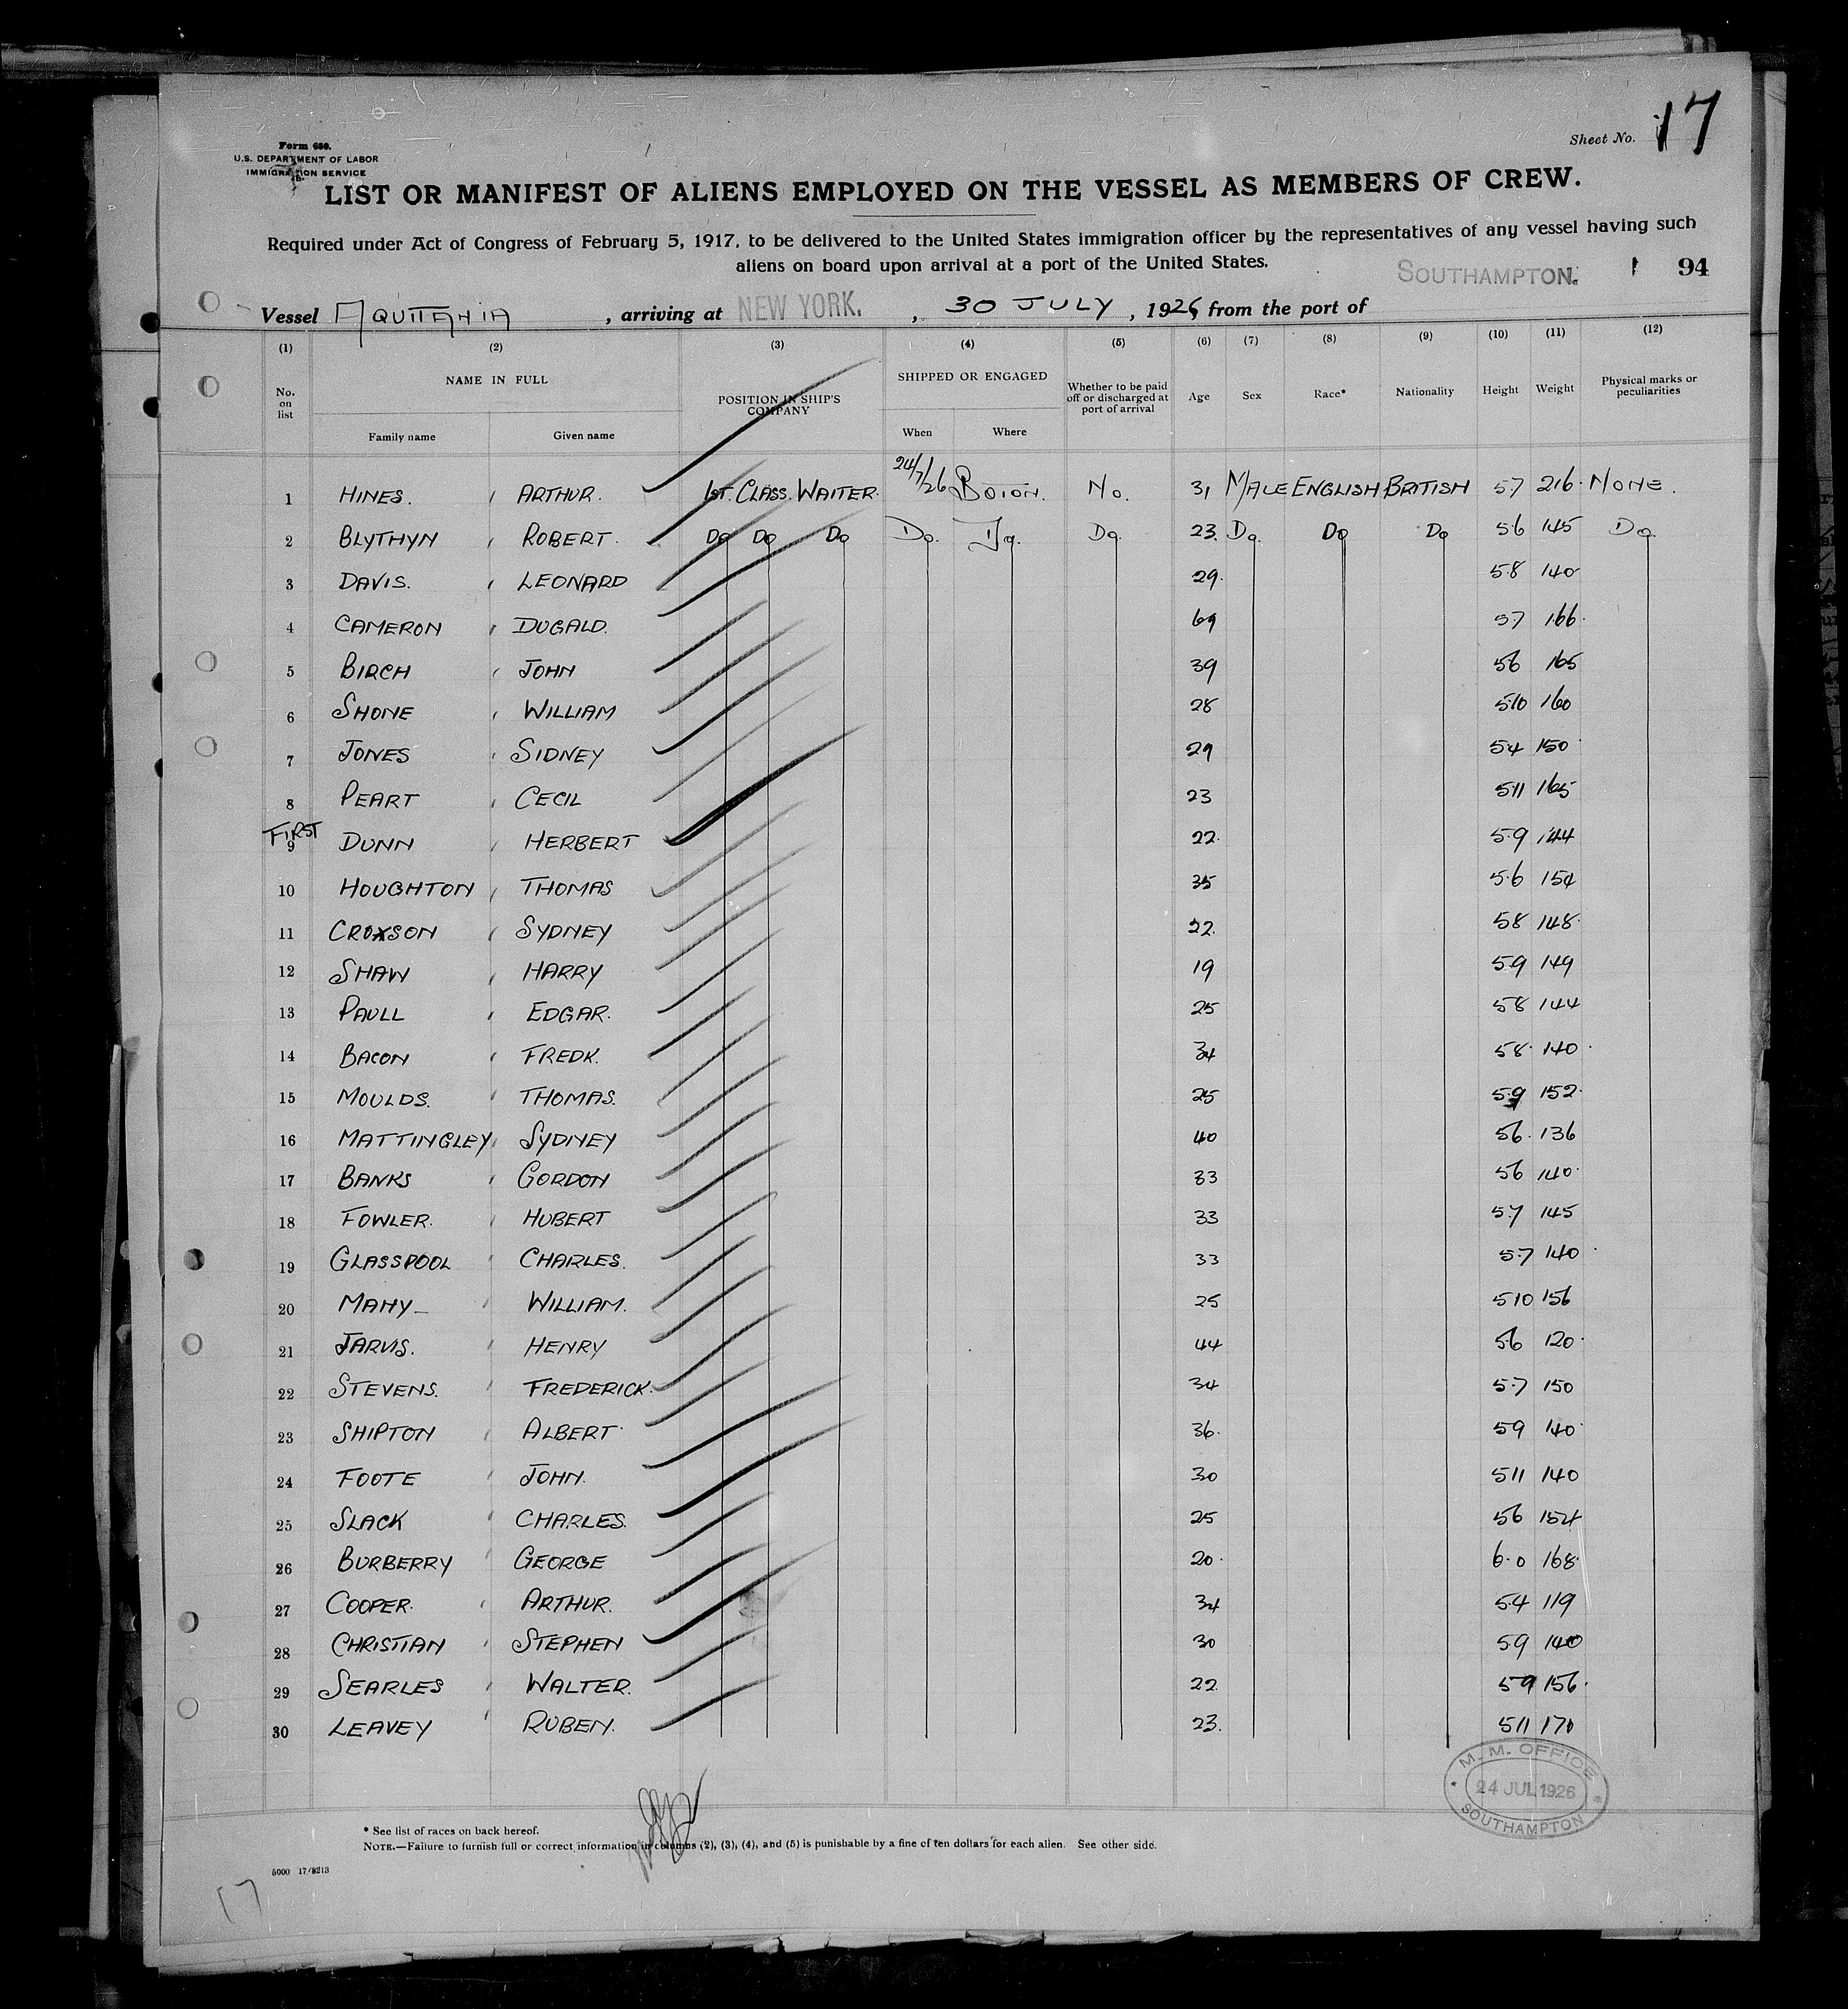 Sheet No. 17
Form 680.
U.S. DEPARTMENT OF LABOR
IMMIGRATION SERVICE
LIST OR MANIFEST OF ALIENS EMPLOYED ON THE VESSEL AS MEMBERS OF CREW.
Required under Act of Congress of February 5, 1917, to be delivered to the United States immigration officer by the representatives of any vessel having such
aliens on board upon arrival at a port of the United States.
SOUTHAMPTON. 94
Vessel AQUITANIA, arriving at NEW YORK., 30 JULY, 1926, from the port of
(1) (2) (3) (4) (5) (6) (7) (8) (9) (10) (11) (12)
No. on list NAME IN FULL Family name Given name POSITION IN SHIP'S COMPANY SHIPPED OR ENGAGED When Where Whether to be paid off or discharged at port of arrival Age Sex Race* Nationality Height Weight Physical marks or peculiarities
1 HINES. ARTHUR. 1ST. CLASS. WAITER. 24/7/26 No. 31 MALE ENGLISH BRITISH 5.7 216. NONE.
2 BLYTHYN ROBERT. Do Do Do Do. Do. Do. 23. Do. Do Do 5.6 145 Do.
3 DAVIS. LEONARD 29. 5.8 140
4 CAMERON DUGALD. 69 5.7 166.
5 BIRCH JOHN 39 56 165
6 SHONE WILLIAM 28 5.10 160
7 JONES SIDNEY 29 54 150
8 PEART CECIL 23 5.11 165
FIRST
9 DUNN HERBERT 22. 5.9 144
10 HOUGHTON THOMAS 35 5.6 154
11 CROXSON SYDNEY 22. 58 148.
12 SHAW HARRY 19 5.9 149
13 PAULL EDGAR. 25 58 144
14 BACON FREDK. 34 58. 140.
15 MOULDS. THOMAS. 25 5.9 152.
16 MATTINGLEY SYDNEY 40 56. 136
17 BANKS GORDON 33 56 140.
18 FOWLER. HUBERT 33 5.7 145
19 GLASSPOOL CHARLES. 33 5.7 140
20 MAHY WILLIAM. 25 5.10 156
21 JARVIS. HENRY 44 56 120.
22 STEVENS. FREDERICK. 34 5.7 150
23 SHIPTON ALBERT. 36. 59 140
24 FOOTE JOHN. 30 511 140
25 SLACK CHARLES. 25 56 154
26 BURBERRY GEORGE 20. 6.0 168.
27 COOPER. ARTHUR. 34 5.4 119
28 CHRISTIAN STEPHEN 30 5.9 140
29 SEARLES WALTER. 22. 59 156.
30 LEAVEY RUBEN. 23. 511 170
M. M. OFFICE
24 JUL 1926
SOUTHAMPTON
* See list of races on back hereof.
NOTE.—Failure to furnish full or correct information in columns (2), (3), (4), and (5) is punishable by a fine of ten dollars for each alien. See other side.
5000 17/8213
17